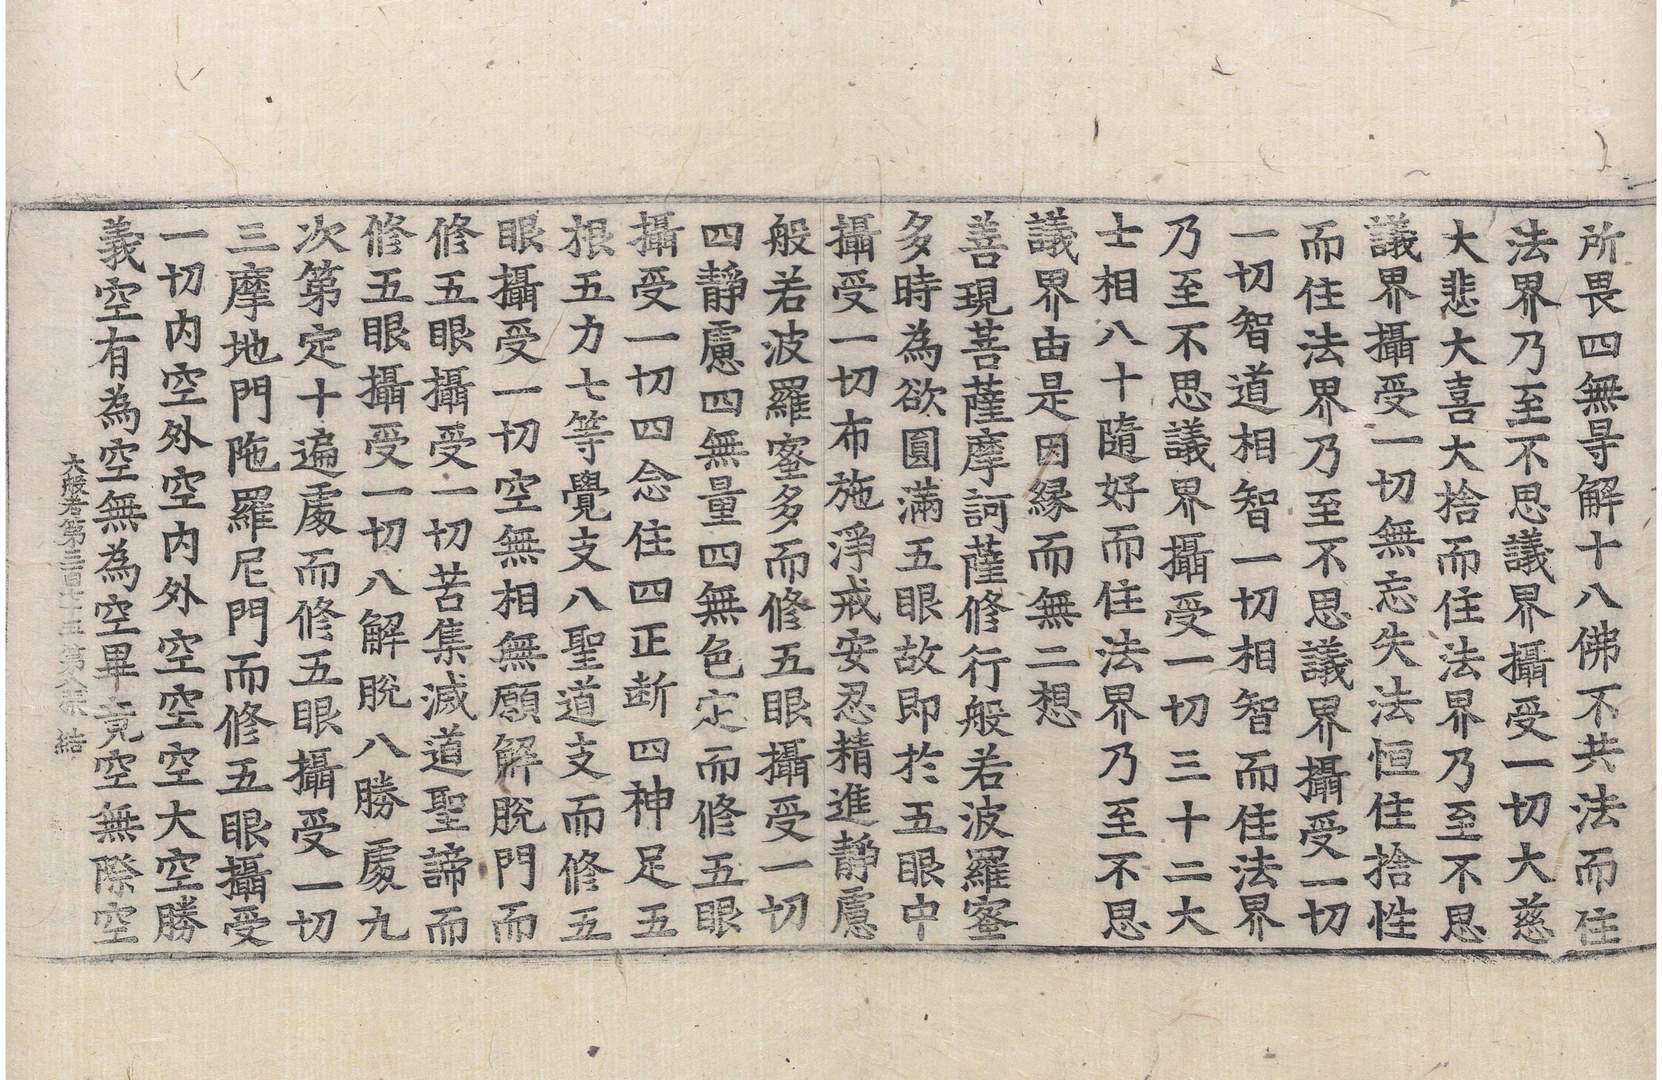 所畏四無㝵解十八佛不共法而住
法界乃至不思議界攝受一切大慈
大悲大喜大捨而住法界乃至不思
議界攝受一切無忘失法恒住捨性
而住法界乃至不思議界攝受一切
一切智道相智一切相智而住法界
乃至不思議界攝受一切三十二大
士相八十隨好而住法界乃至不思
議界由是因緣而無二想
善現菩薩摩訶薩修行般若波羅蜜
多時為欲圓滿五眼故即於五眼中
攝受一切布施淨戒安忍精進靜慮
般若波羅蜜多而修五眼攝受一切
四靜慮四無量四無色定而修五眼
攝受一切四念住四正断四神足五
根五力七等覺支八聖道支而修五
眼攝受一切空無相無願解脫門而
修五眼攝受一切苦集滅道聖諦而
修五眼攝受一切八解脫八勝處九
次第定十遍處而修五眼攝受一切
三摩地門陁羅尼門而修五眼攝受
一切內空外空內外空空空大空勝
義空有為空無為空畢竟空無際空
大般若第三百七十五 第八 結